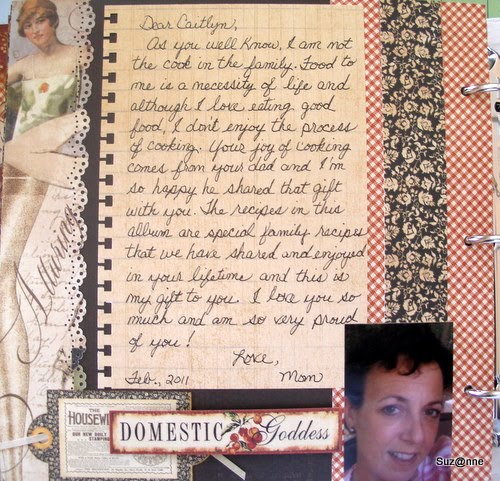 Dear Caitlyn,
As you well know, I am not
the cook in the family. Food to
me is a necessity of life and
although I love eating good
food, I don't enjoy the process
of cooking. Your joy of cooking
comes from your dad and I'm
so happy he shared that gift
with you. The recipes in this
album are special family recipes
that we have shared and enjoyed
in your lifetime and this is
my gift to you. I love you so
much and am so very proud
of you!
Love,
Feb., 2011 Mom
Alluring
THE
HOUSEWIFE
DOMESTIC Goddess
Suz@nne